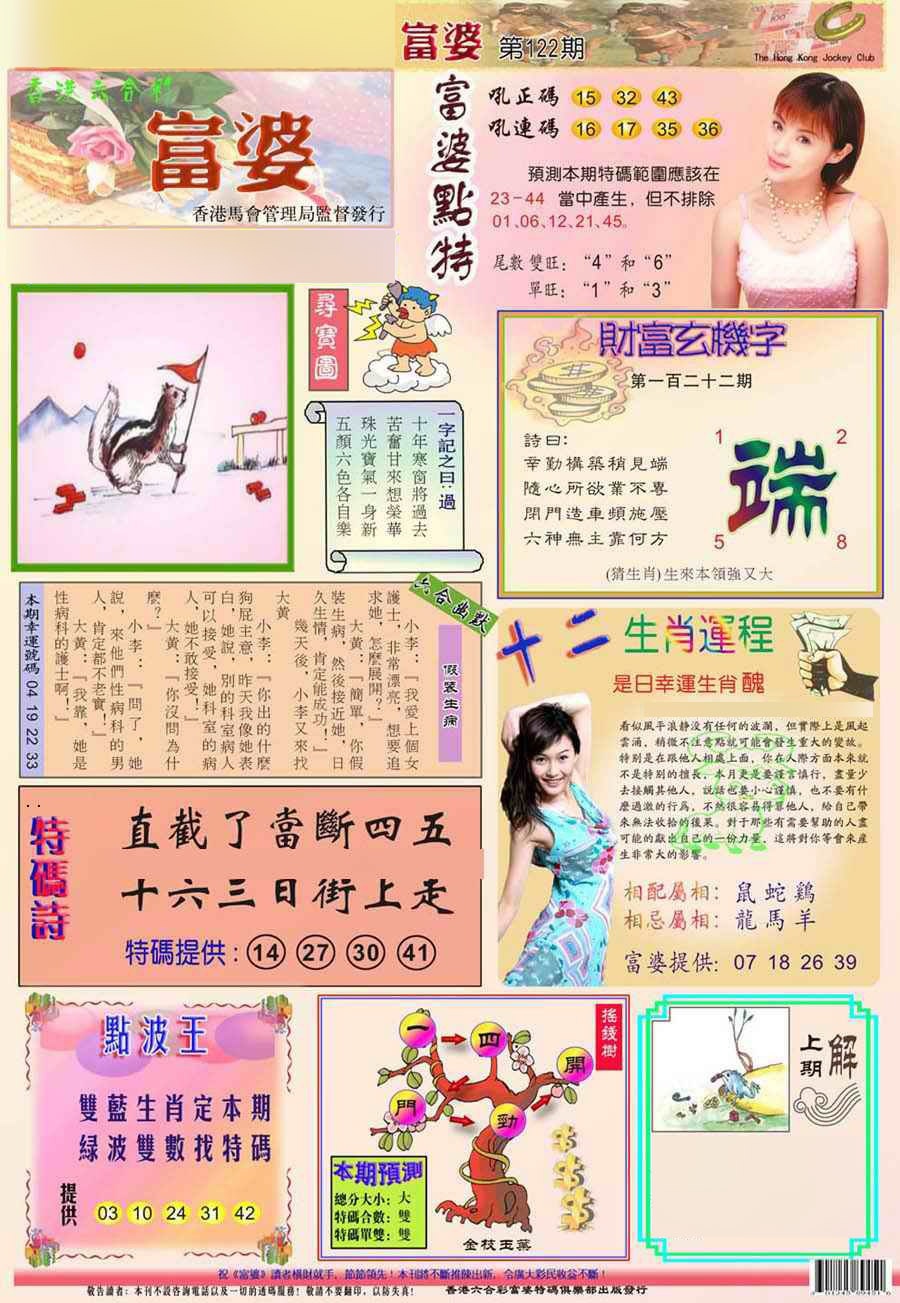 富婆 第122期
The Hong Kong Jockey Club
香港六合彩
富婆
香港馬會管理局監督發行
富婆點特
吼正碼 15 32 43
吼連碼 16 17 35 36
預測本期特碼範圍應該在
23-44 當中產生，但不排除
01、06、12、21、45。
尾數雙旺：“4”和“6”
單旺：“1”和“3”
尋寶圖
一字記之曰：過
十年寒窗將過去
苦奮甘來想榮華
珠光寶氣一身新
五顏六色各自樂
財富玄機字
第一百二十二期
詩曰：
幸勤構築稍見端
隨心所欲業不專
閉門造車頻施壓
六神無主靠何方
1 2
端
5 8
(猜生肖)生來本領強又大
六合幽默
假裝生病
小李：『我愛上個女
護士，非常漂亮，想要追
求她，怎麽展開？』
大黃：『簡單，你假
裝生病，然後接近她，日
久生情，肯定能成功！』
幾天後，小李又來找
大黃
小李：『你出的什麽
狗屁主意，昨天我像她表
白，她說，別的科室病人
可以接受，她科室的病
人，她不敢接受！』
大黃：『你沒問為什
麽？』
小李：『問了，她
說，來他們性病科的男
人，肯定都不老實！』
大黃：『我靠，她是
性病科的護士啊！』
本期幸運號碼 04 19 22 33
十二生肖運程
是日幸運生肖 醜
看似風平浪静没有任何的波瀾，但實際上是風起
雲涌，稍微不注意點就可能會發生重大的變故。
特别是在跟他人相處上面，你在人際方面本來就
不是特别的擅長，本月更是要謹言慎行，盡量少
去接觸其他人，説話也要小心謹慎，也不要有什
麽過激的行爲，不然很容易得罪他人，給自己帶
來無法收拾的後果。對于那些有需要幫助的人盡
可能的獻出自己的一份力量，這將對你等會來産
生非常大的影響。
相配屬相：鼠蛇鷄
相忌屬相：龍馬羊
富婆提供：07 18 26 39
特碼詩
直截了當斷四五
十六三日街上走
特碼提供：14 27 30 41
點波王
雙藍生肖定本期
綠波雙數找特碼
提供 03 10 24 31 42
搖錢樹
一 四 開
門 勁
本期預測
總分大小：大
特碼合數：雙
特碼單雙：雙
金枝玉葉
解上期
祝《富婆》讀者橫財就手，節節領先！本刊將不斷推陳出新，令廣大彩民收益不斷！
敬告讀者：本刊不設咨詢電話以及一切的透碼服務！敬請不要翻印，以防失真！
香港六合彩富婆特碼俱樂部出版發行